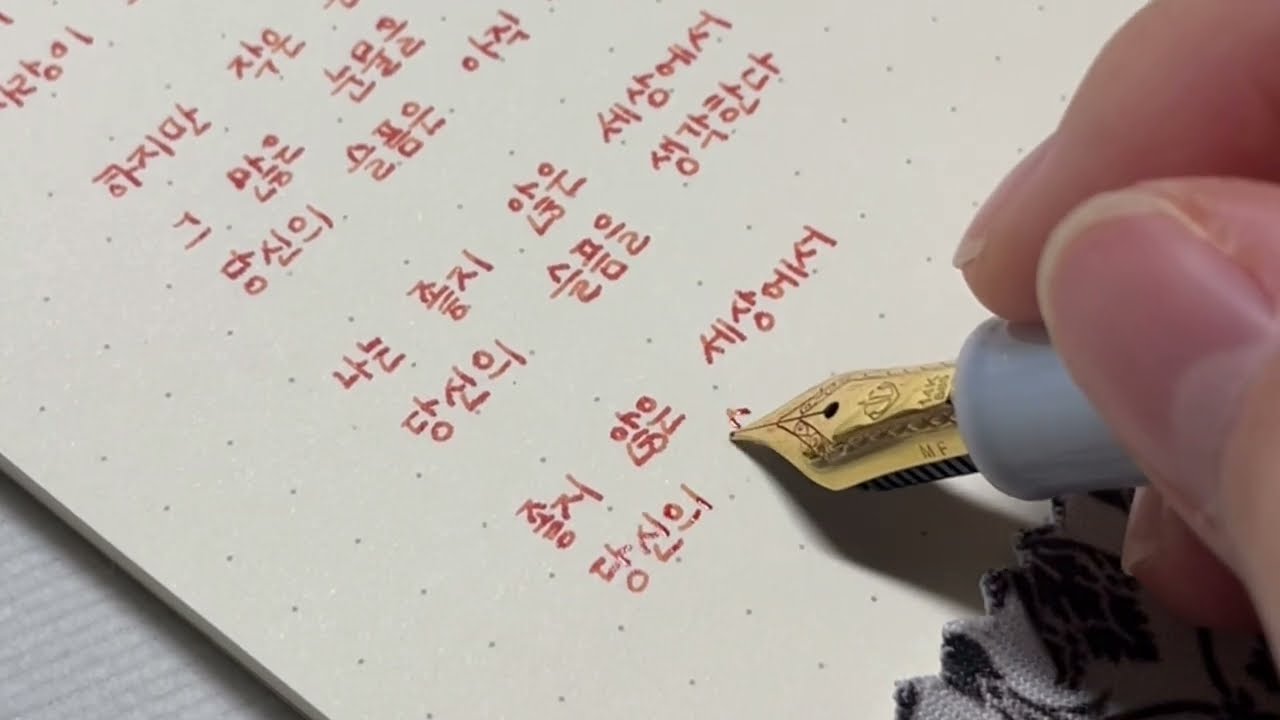 사랑이
하지만 작은
많은 눈물을
당신의 슬픔은 아직
나는 좋지 않은 세상에서
당신의 슬픔을 생각한다
좋지 않은 세상에서
당신의 ㅅ
14K
MF